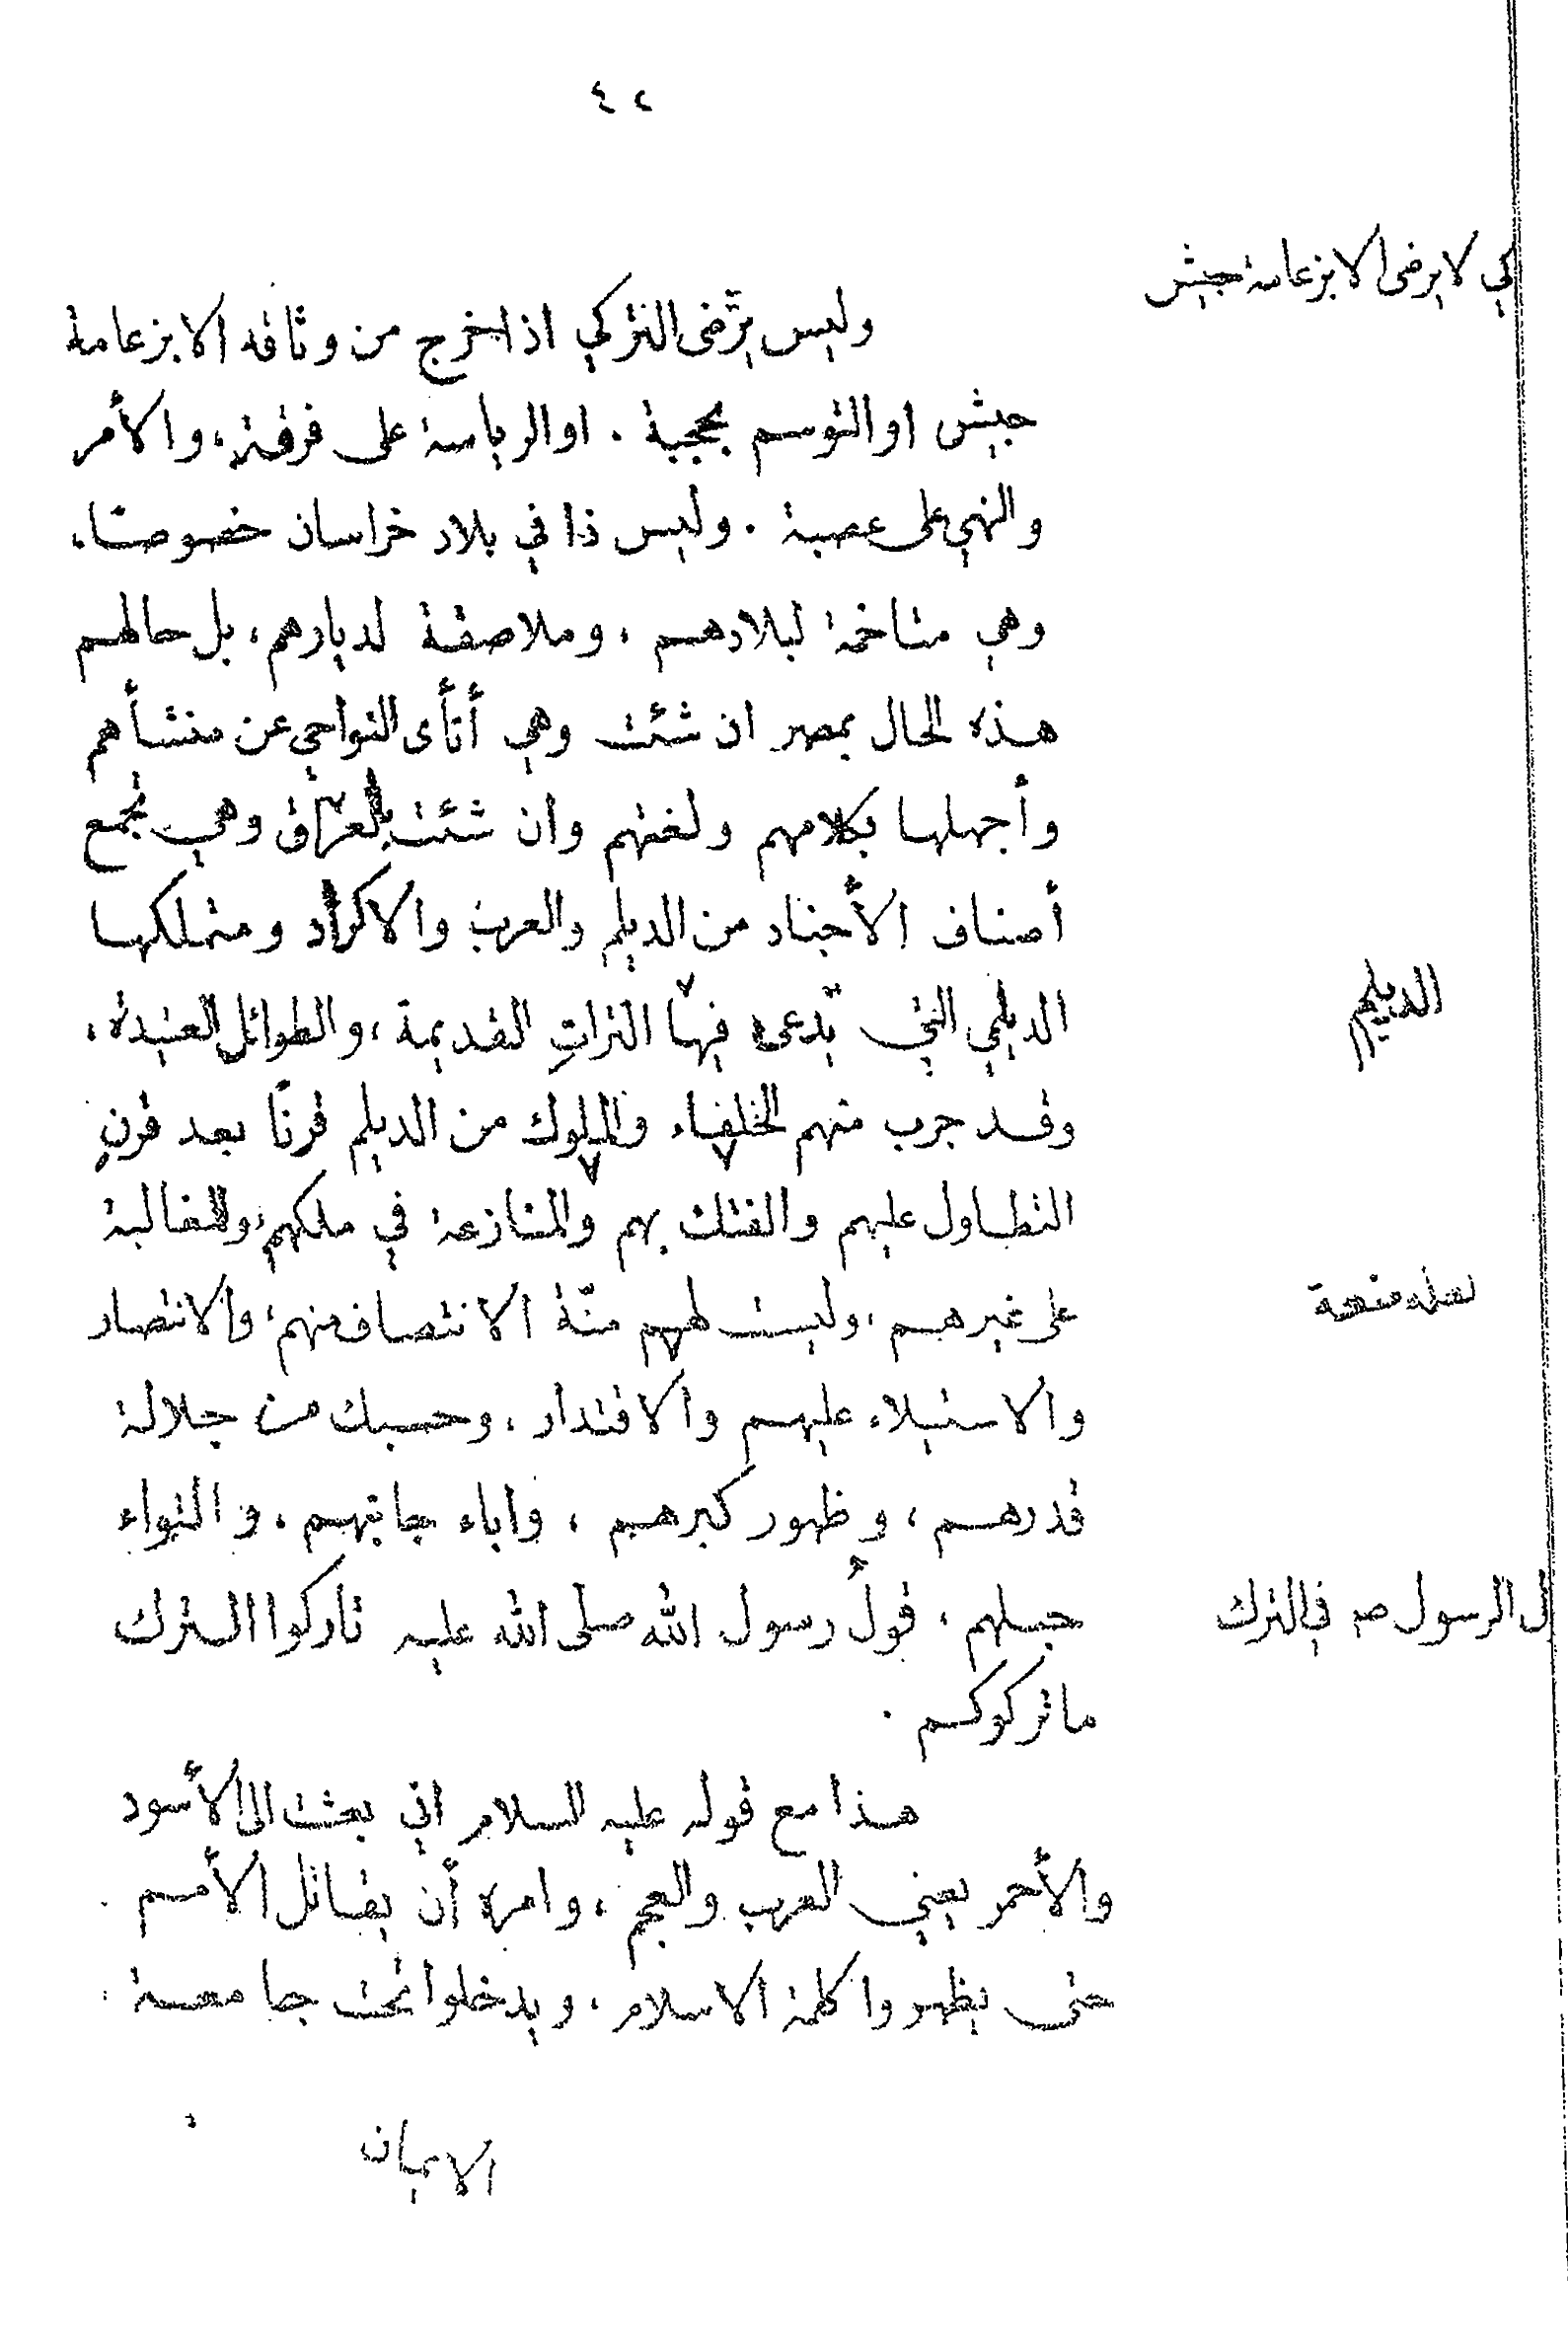 ٤٢
كي لا يرضى الا بزعامة جيش
وليس يرضى التركي اذا خرج من وثاقه الا بزعامة
جيش او التوسم بحجبة . او الرياسة على فرقة ، والأمر
والنهي على عصبة . وليس ذا في بلاد خراسان خصوصًا ،
وهي متاخمة لبلادهم ، وملاصقة لديارهم ، بل حالهم
هذه الحال بمصر ان شئت وهي أنأى النواحي عن منشأهم
وأجهلها بكلامهم ولغتهم وان شئت بالعراق وهي تجمع
أصناف الأجناد من الديلم والعرب والاكراد ومتملكها
الديلم
الديلمي التي يدعى فيها التراتِ القديمة ، والطوائل العتيدة ،
وقد جرب منهم الخلفاء والملوك من الديلم قرنًا بعد قرنٍ
التطاول عليهم والفتك بهم والمنازعة في ملكهم والمغالبة
لعله منعة
على غيرهم ، وليست لهم منّة الانتصاف منهم ، والانتصار
والاستيلاء عليهم والاقتدار ، وحسبك من جلالة
قدرهم ، وظهور كبرهم ، واباء جانبهم ، والتواء
ل الرسول صم في الترك
حبلهم ، قولُ رسول الله صلى الله عليه تاركوا الترك
ما تركوكم .
هذا مع قوله عليه السلام اني بعثت الى الأسود
والأحمر يعني العرب والعجم ، وامره أن يقاتل الأمم
حتى يظهروا كلمة الاسلام ، ويدخلوا تحت جامعة
الايمان